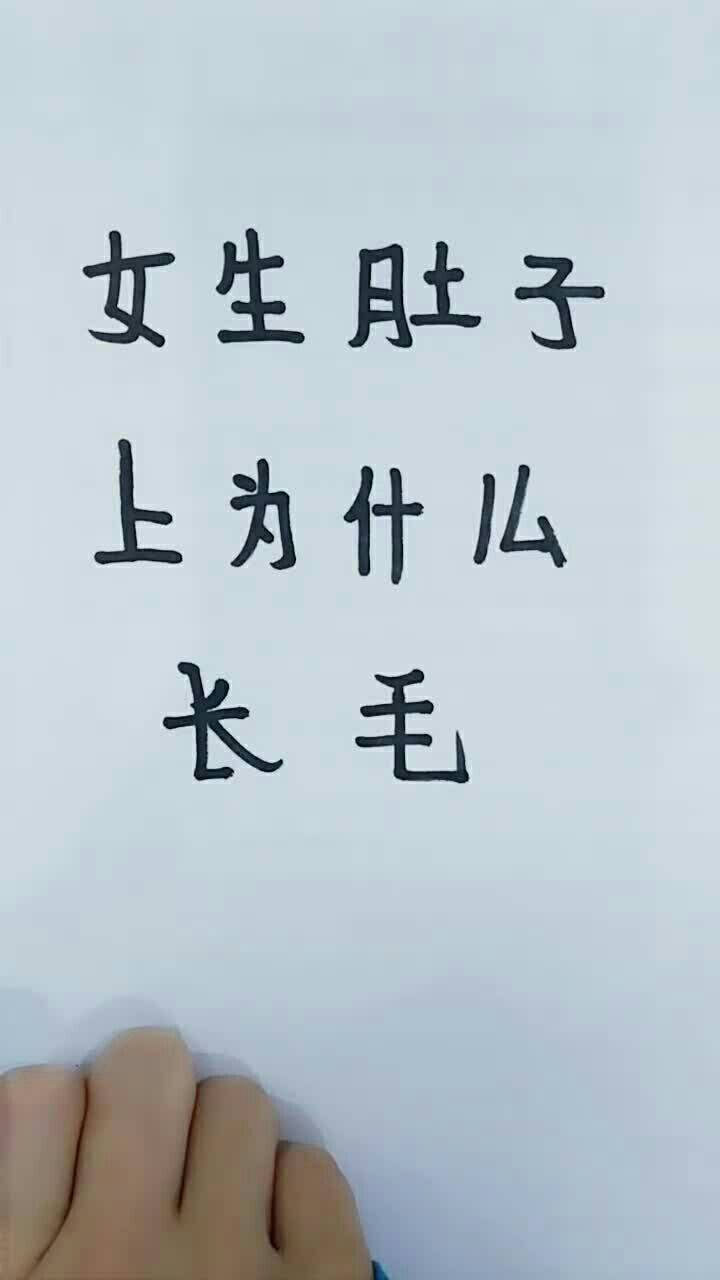 女生肚子
上为什么
长毛